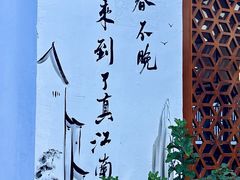 春不晚
来到了真江南